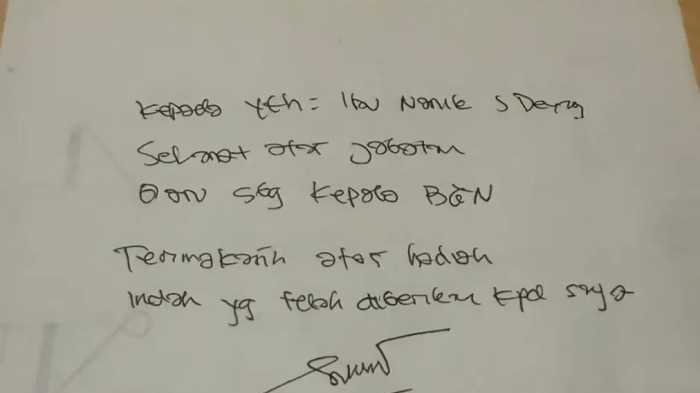 Kepada Yth = Ibu Nanik S Deyang
Selamat atas jabatan
sbg Kepala BGN
Terimakasih atas hadiah
Indah yg telah diberikan kpd saya